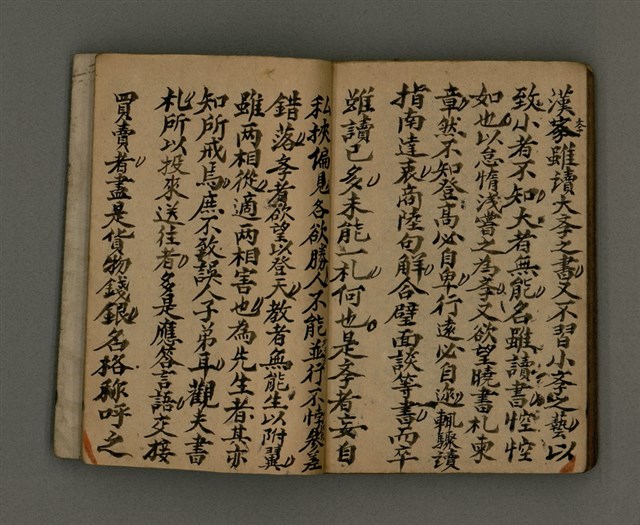 漢家雖讀大孝之書又不習小孝之藝以
致小者不知大者無能名雖讀書悾悾
如也以怠惰淺嘗之為孝又欲望曉書札柬
竟然不知登高必自卑行遠必自邇輒驟讀
指南達衷商陸句解合璧面談等書而卒
雖讀已多未能一札何也是孝者妄自
私挾偏見各欲勝人不能並行不悖幾差
錯落孝者欲望以登天教者無能生以附翼
雖兩相從適兩相害也為先生者其亦
知所戒焉庶不致誤人子弟耳觀夫書
札所以投來送往者多是應答言語交接
買賣者盡是貨物錢銀名格稱呼之